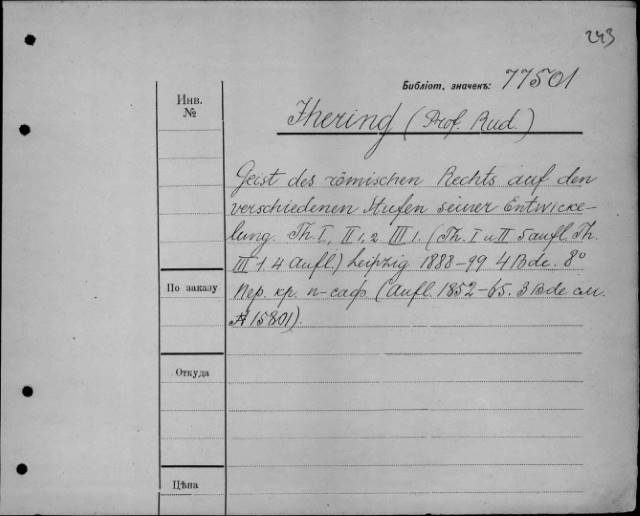 243
Библіот. значекъ: 77501
Инв. №
Ihering (Prof. Rud.)
Geist des römischen Rechts auf den
verschiedenen Stufen seiner Entwicke-
lung. Th. I, II 1, 2 III 1. (Th. I u II 5 aufl. Th.
III 1 4 Aufl.) Leipzig 1888-99 4 Bde. 8°
Пер. кр. п-саф (Aufl. 1852-65. 3 Bde см.
А 15801).
По заказу
Откуда
Цѣна